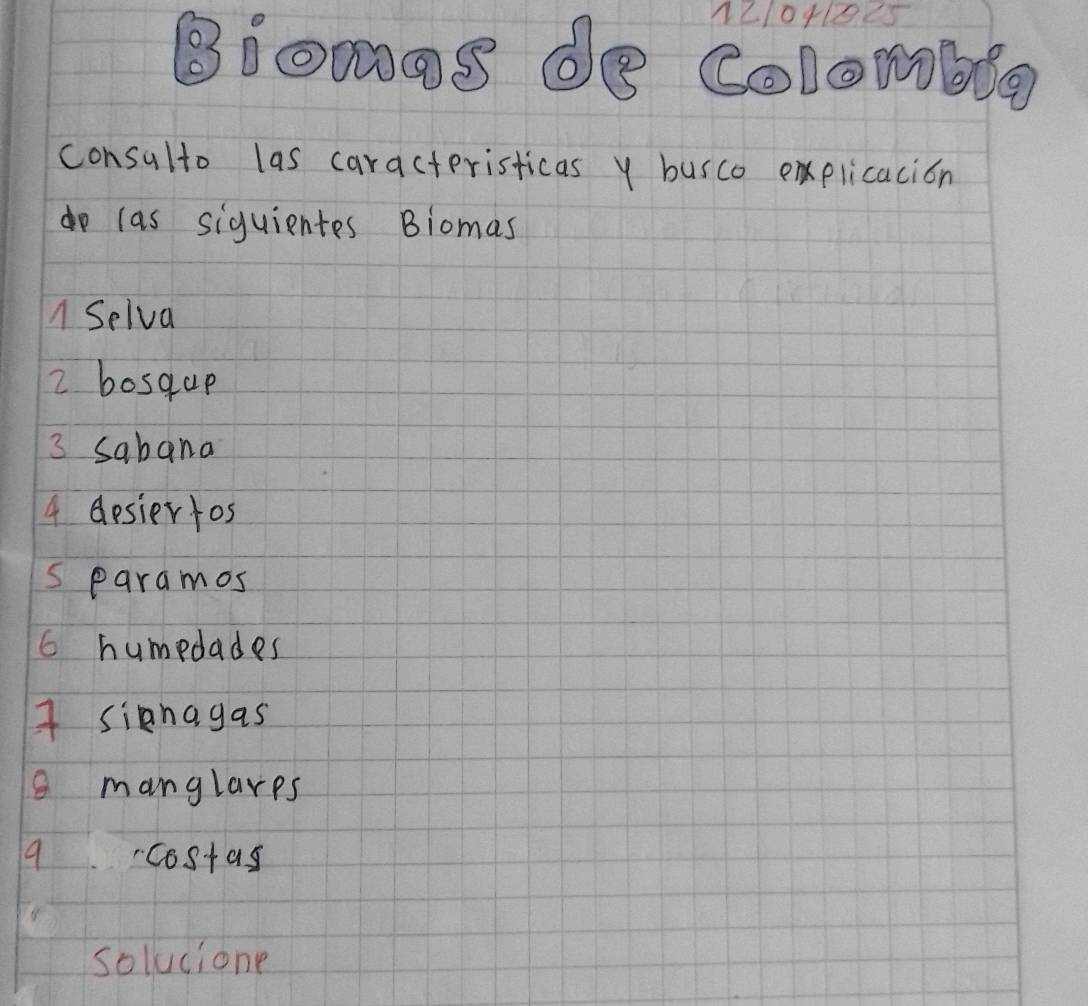 12/04/2025
Biomas de Colombia
consulto las caracteristicas y busco explicación
de las siguientes Biomas
1 Selva
2 bosque
3 sabana
4 desiertos
5 paramos
6 humedades
7 sienagas
8 manglares
9 costas
solucione